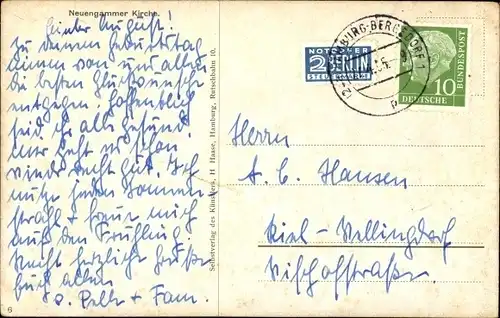 Neuengammer Kirche.
Lieber August!
Zu deinem Geburtstag
nimm von uns allen
die besten Glückwünsche
entgegen. Hoffentlich
seid ihr alle gesund.
Mir geht es schon
wieder recht gut. Ich
nutze jeden Sonnen-
strahl + freue mich
auf den Frühling
Recht herzliche Grüße
Euch allen
+ Fam.
Selbstverlag des Künstlers, H Haase, Hamburg, Retschbahn 10.
6
NOTOPFER
2 BERLIN
STEUERMARKE
BURG-BERGEDORF
DEUTSCHE
BUNDESPOST
10
Herrn
A. C. Hansen
Kiel-Wellingdorf
Wischhofstraße